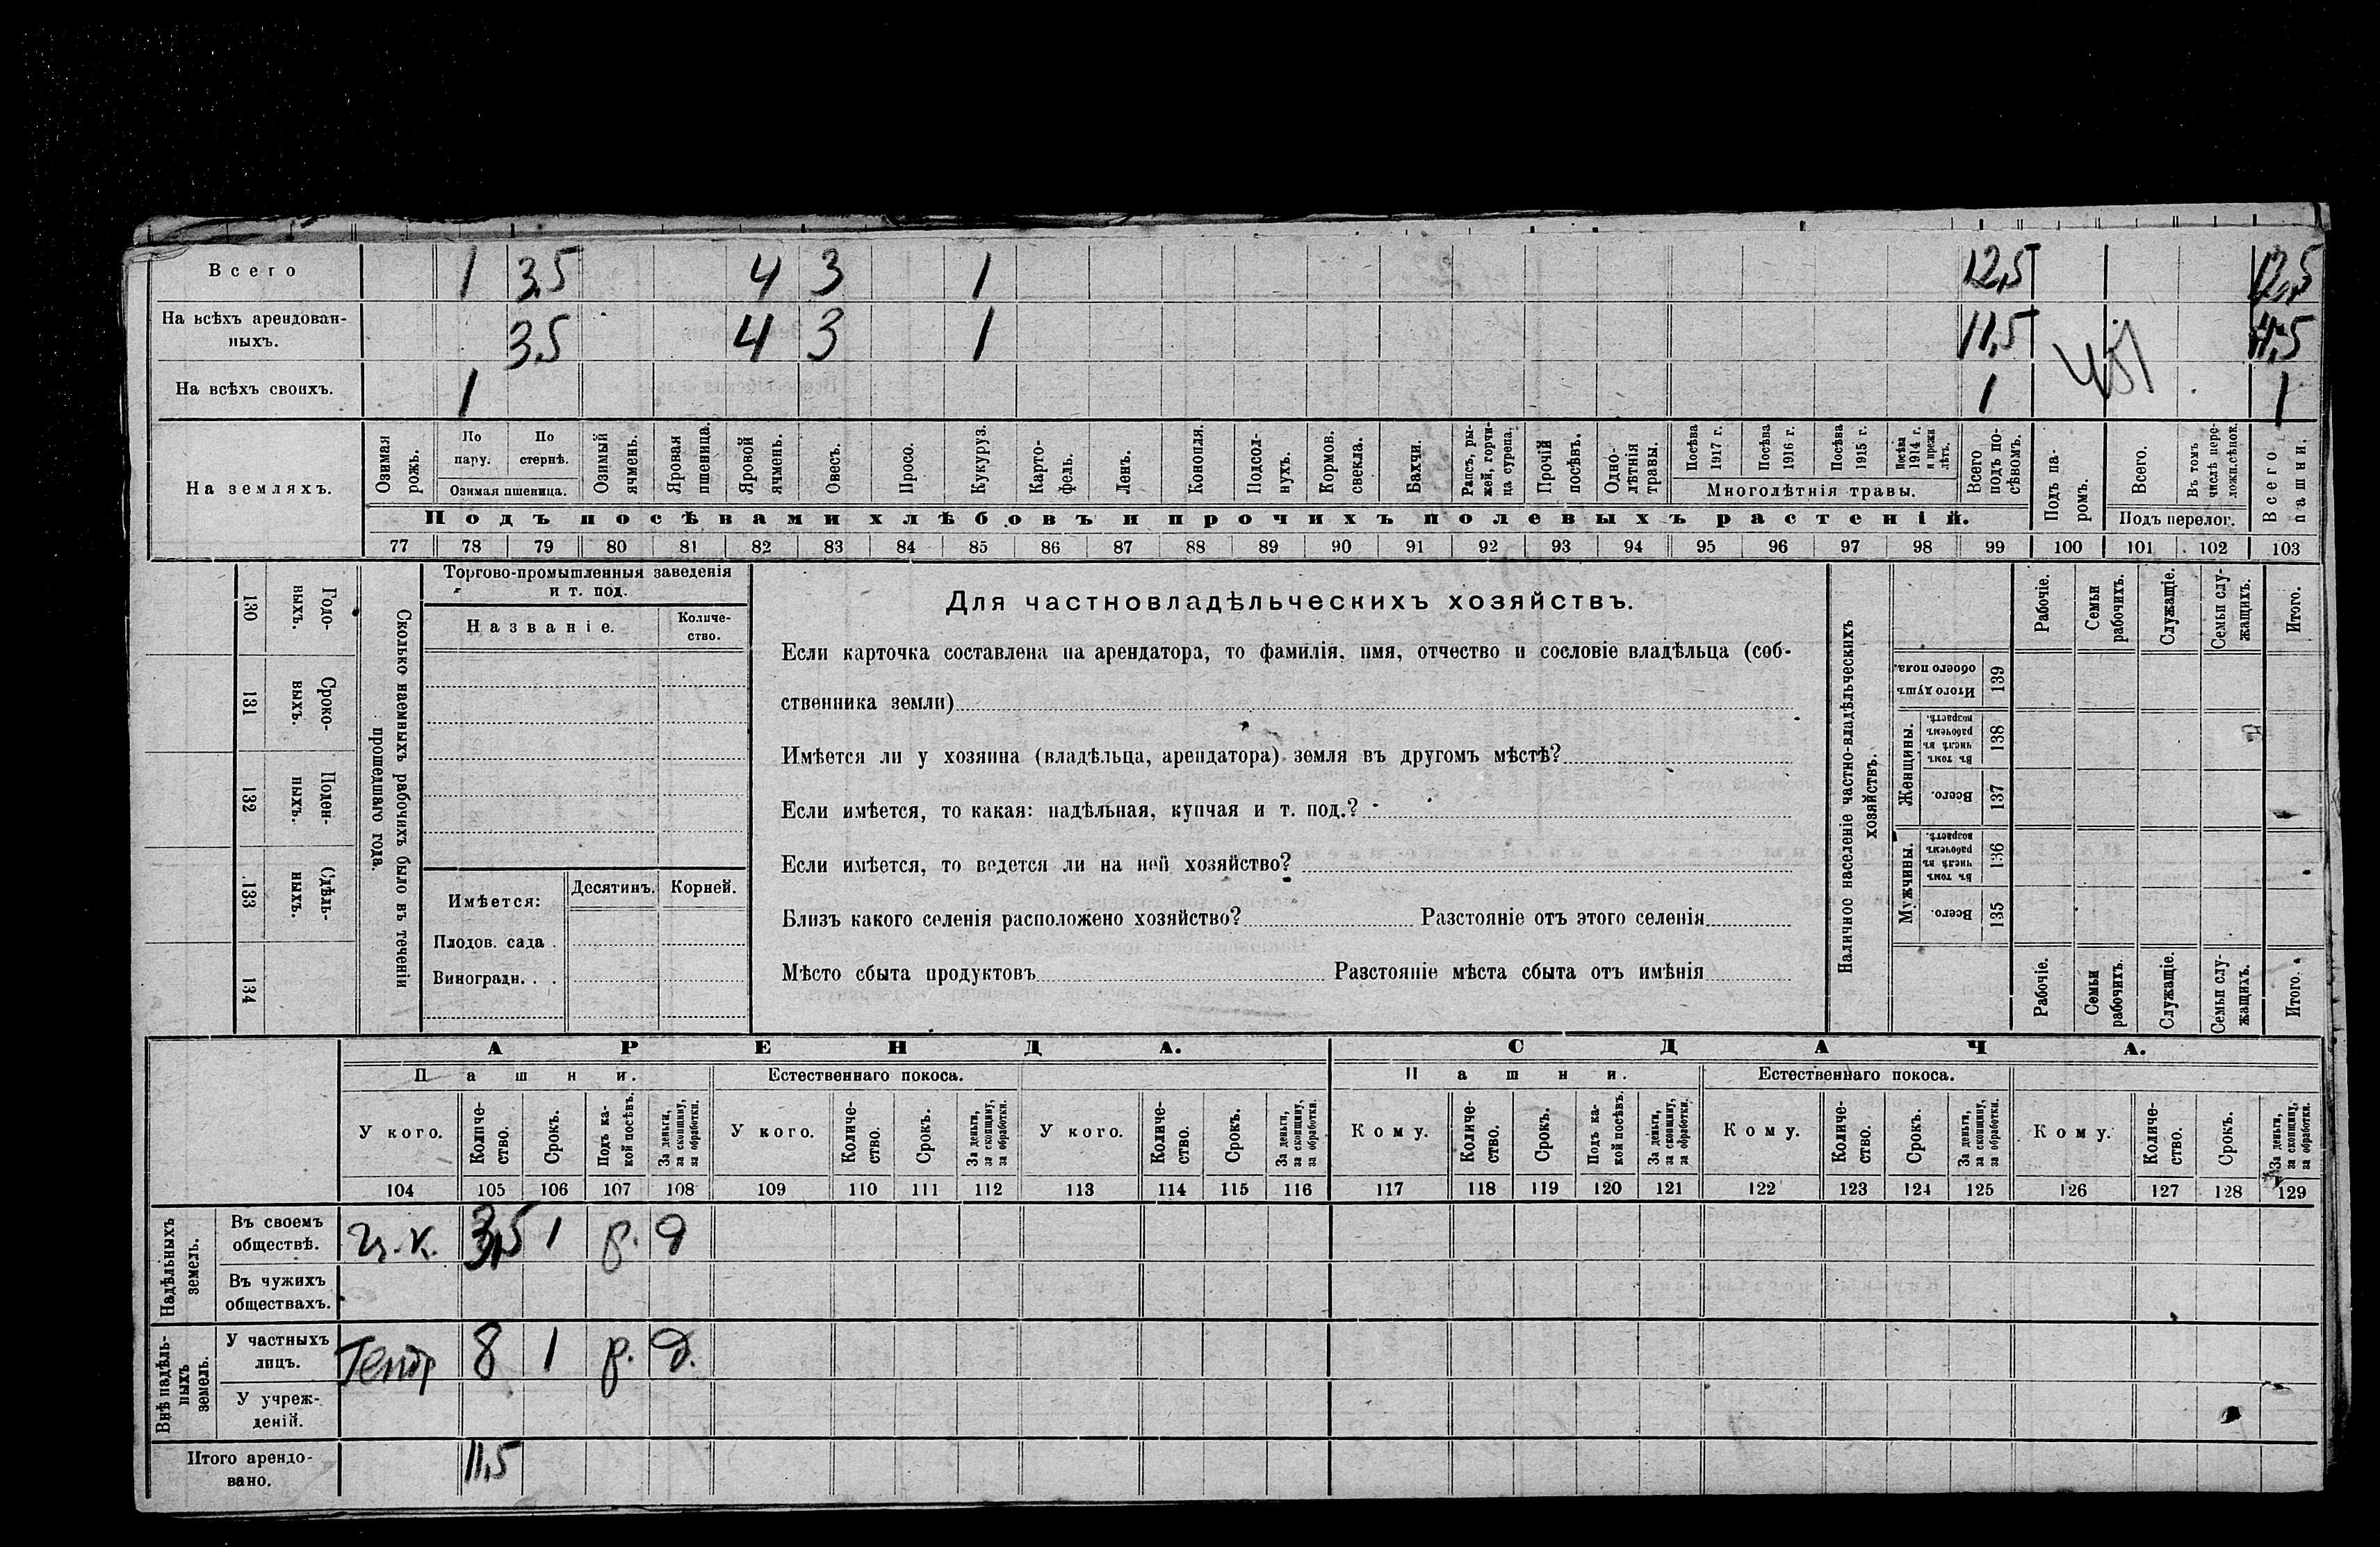 Всего 1 3,5 4 3 1 12,5 12,5
На всѣхъ арендован-
ныхъ. 3,5 4 3 1 11,5 11,5
На всѣхъ своихъ. 1 1 1
На земляхъ.
Озимая рожь.
По пару.
По стернѣ.
Озимая пшеница.
Озимый ячмень.
Яровая пшеница.
Яровой ячмень.
Овесъ.
Просо.
Кукуруз.
Карто-
фель.
Ленъ.
Конопля.
Подсол-
нухъ.
Кормов.
свекла.
Бахчи.
Рапсъ, ры-
жей, горчи-
ца сурепа.
Прочій посѣвъ.
Одно-
лѣтнія травы.
Посѣва 1917 г.
Посѣва 1916 г.
Посѣва 1915 г.
Посѣва 1914 г. и прежн лѣтъ.
Многолѣтнія травы.
Всего подъ по-
сѣвомъ.
Подъ па-
ромъ.
Всего.
Въ томъ числѣ пере-
ложн.сѣнок.
Подъ перелог.
Всего пашни.
Подъ посѣвами хлѣбовъ и прочихъ полевыхъ растеній.
77 78 79 80 81 82 83 84 85 86 87 88 89 90 91 92 93 94 95 96 97 98 99 100 101 102 103
Годо-
выхъ.
130
Сроко-
выхъ.
131
Поден-
ныхъ.
132
Сдѣль-
ныхъ.
133
134
Сколько наемныхъ рабочихъ было въ теченіи
прошедшаго года.
Торгово-промышленныя заведенія
и т. под.
Названіе.
Количе-
ство.
Имѣется:
Десятинъ.
Корней.
Плодов. сада .
Виноградн. . .
Для частновладѣльческихъ хозяйствъ.
Если карточка составлена на арендатора, то фамилія, имя, отчество и сословіе владѣльца (соб-
ственника земли)
Имѣется ли у хозяина (владѣльца, арендатора) земля въ другомъ мѣстѣ?
Если имѣется, то какая: надѣльная, купчая и т. под.?
Если имѣется, то ведется ли на ней хозяйство?
Близъ какого селенія расположено хозяйство? Разстояніе отъ этого селенія
Мѣсто сбыта продуктовъ Разстояніе мѣста сбыта отъ имѣнія
Наличное населеніе частно-владѣльческихъ
хозяйствъ.
Рабочіе.
Семьи рабочихъ.
Служащіе.
Семьи слу-
жащихъ.
Итого.
Итого душъ обоего пола.
139
Женщины.
Въ томъ числѣ въ рабочемъ возрастѣ.
138
Всего.
137
Мужчины.
Въ томъ числѣ въ рабочемъ возрастѣ.
136
Всего.
135
Рабочіе.
Семьи рабочихъ.
Служащіе.
Семьи слу-
жащихъ.
Итого.
АРЕНДА. СДАЧА.
Пашни. Естественнаго покоса. Пашни. Естественнаго покоса.
У кого.
Количе-
ство.
Срокъ.
Подъ ка-
кой посѣвъ.
За деньги, за скопщину, за обработки.
У кого.
Количе-
ство.
Срокъ.
За деньги, за скопщину, за обработки.
У кого.
Количе-
ство.
Срокъ.
За деньги, за скопщину, за обработки.
Кому.
Количе-
ство.
Срокъ.
Подъ ка-
кой посѣвъ.
За деньги, за скопщину, за обработки.
Кому.
Количе-
ство.
Срокъ.
За деньги, за скопщину, за обработки.
Кому.
Количе-
ство.
Срокъ.
За деньги, за скопщину, за обработки.
104 105 106 107 108 109 110 111 112 113 114 115 116 117 118 119 120 121 122 123 124 125 126 127 128 129
Надѣльныхъ
земель.
Въ своемъ
обществѣ. 3,5 1 р. д
Въ чужихъ
обществахъ.
Внѣ надѣль-
ныхъ
земель.
У частныхъ
лицъ. 8 1 р. д.
У учреж-
деній.
Итого арендо-
вано. 11,5